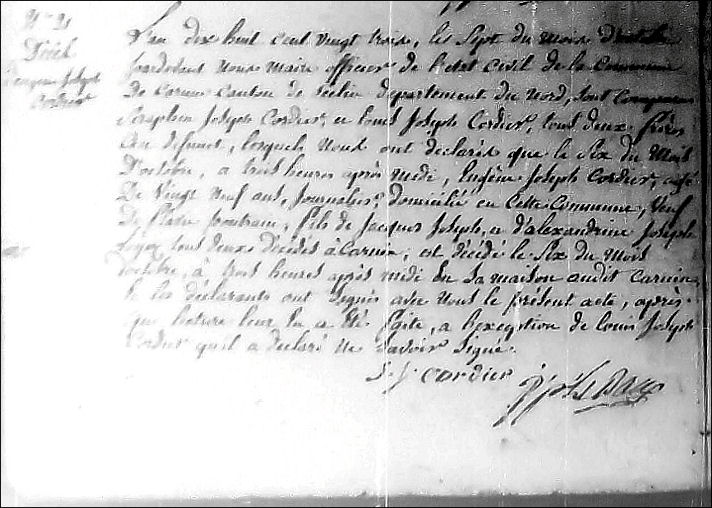 Décès
Eugène Joseph
Cordier
L'an dix huit cent vingt trois, les Sept du mois d'octobre
pardevant nous maire officier de l'état civil de la Commune
De Carvin Canton de Seclin département du Nord, sont Comparus
Seraphin Joseph Cordier et louis Joseph Cordier, tous deux frères
du defunct, lesquels Nous ont déclarés que le Six du Mois
D'octobre, a trois heures après midi, Eugène Joseph Cordier, agé
De Vingt neuf ans, Journalier, domicilié en Cette Commune, Veuf
De fils de Jacques Joseph, et d'alexandrine Joseph
tous deux décédés à Carvin, est décédé le Six du mois
d'octobre, à trois heures après midi En Sa maison audit Carvin
& les déclarants ont Signés avec Nous le présent acte, après
que lecture leur en a été faite, a l'exception de louis Joseph
Cordier qui l a déclaré Ne Savoir Signé.
S. J. Cordier